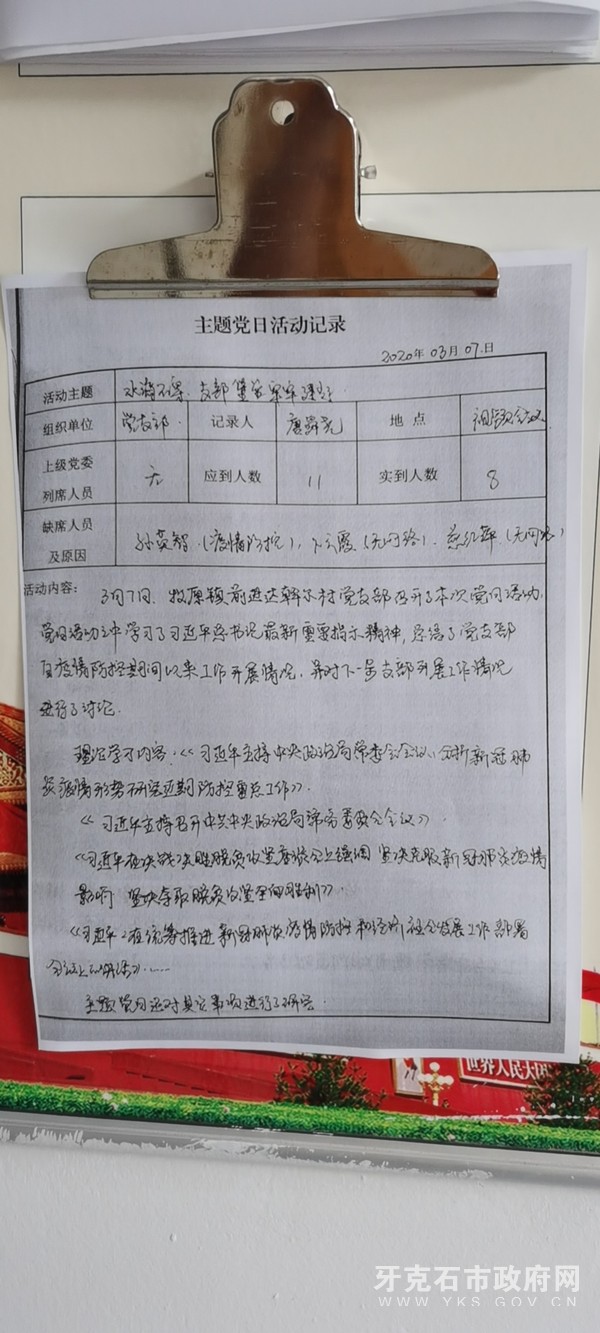 主题党日活动记录
2020年 03月 07日
活动主题
组织单位 党支部 记录人 地点 视频会议
上级党委列席人员 无 应到人数 11 实到人数 8
缺席人员及原因 孙英智(疫情防控)、(无网络)、(无网络)
活动内容: 3月7日,牧原镇 村党支部召开了本次党日活动,
党日活动中学习了习近平总书记最新重要指示精神,总结了党支部
自疫情防控期间以来工作开展情况,并对下一步支部开展工作情况
进行了讨论.
理论学习内容:《习近平主持中央政治局常委会会议,分析新冠肺
炎疫情形势研究近期防控重点工作》.
《习近平主持召开中共中央政治局常务委员会会议》.
《习近平在决战决胜脱贫攻坚座谈会上强调 坚决克服新冠肺炎疫情
影响 坚决夺取脱贫攻坚全面胜利》.
《习近平:在统筹推进新冠肺炎疫情防控和经济社会发展工作部署
会议上的讲话》……
主题党日还对其它事项进行了研究.
世界人民大团
牙克石市政府网
WWW.YKS.GOV.CN